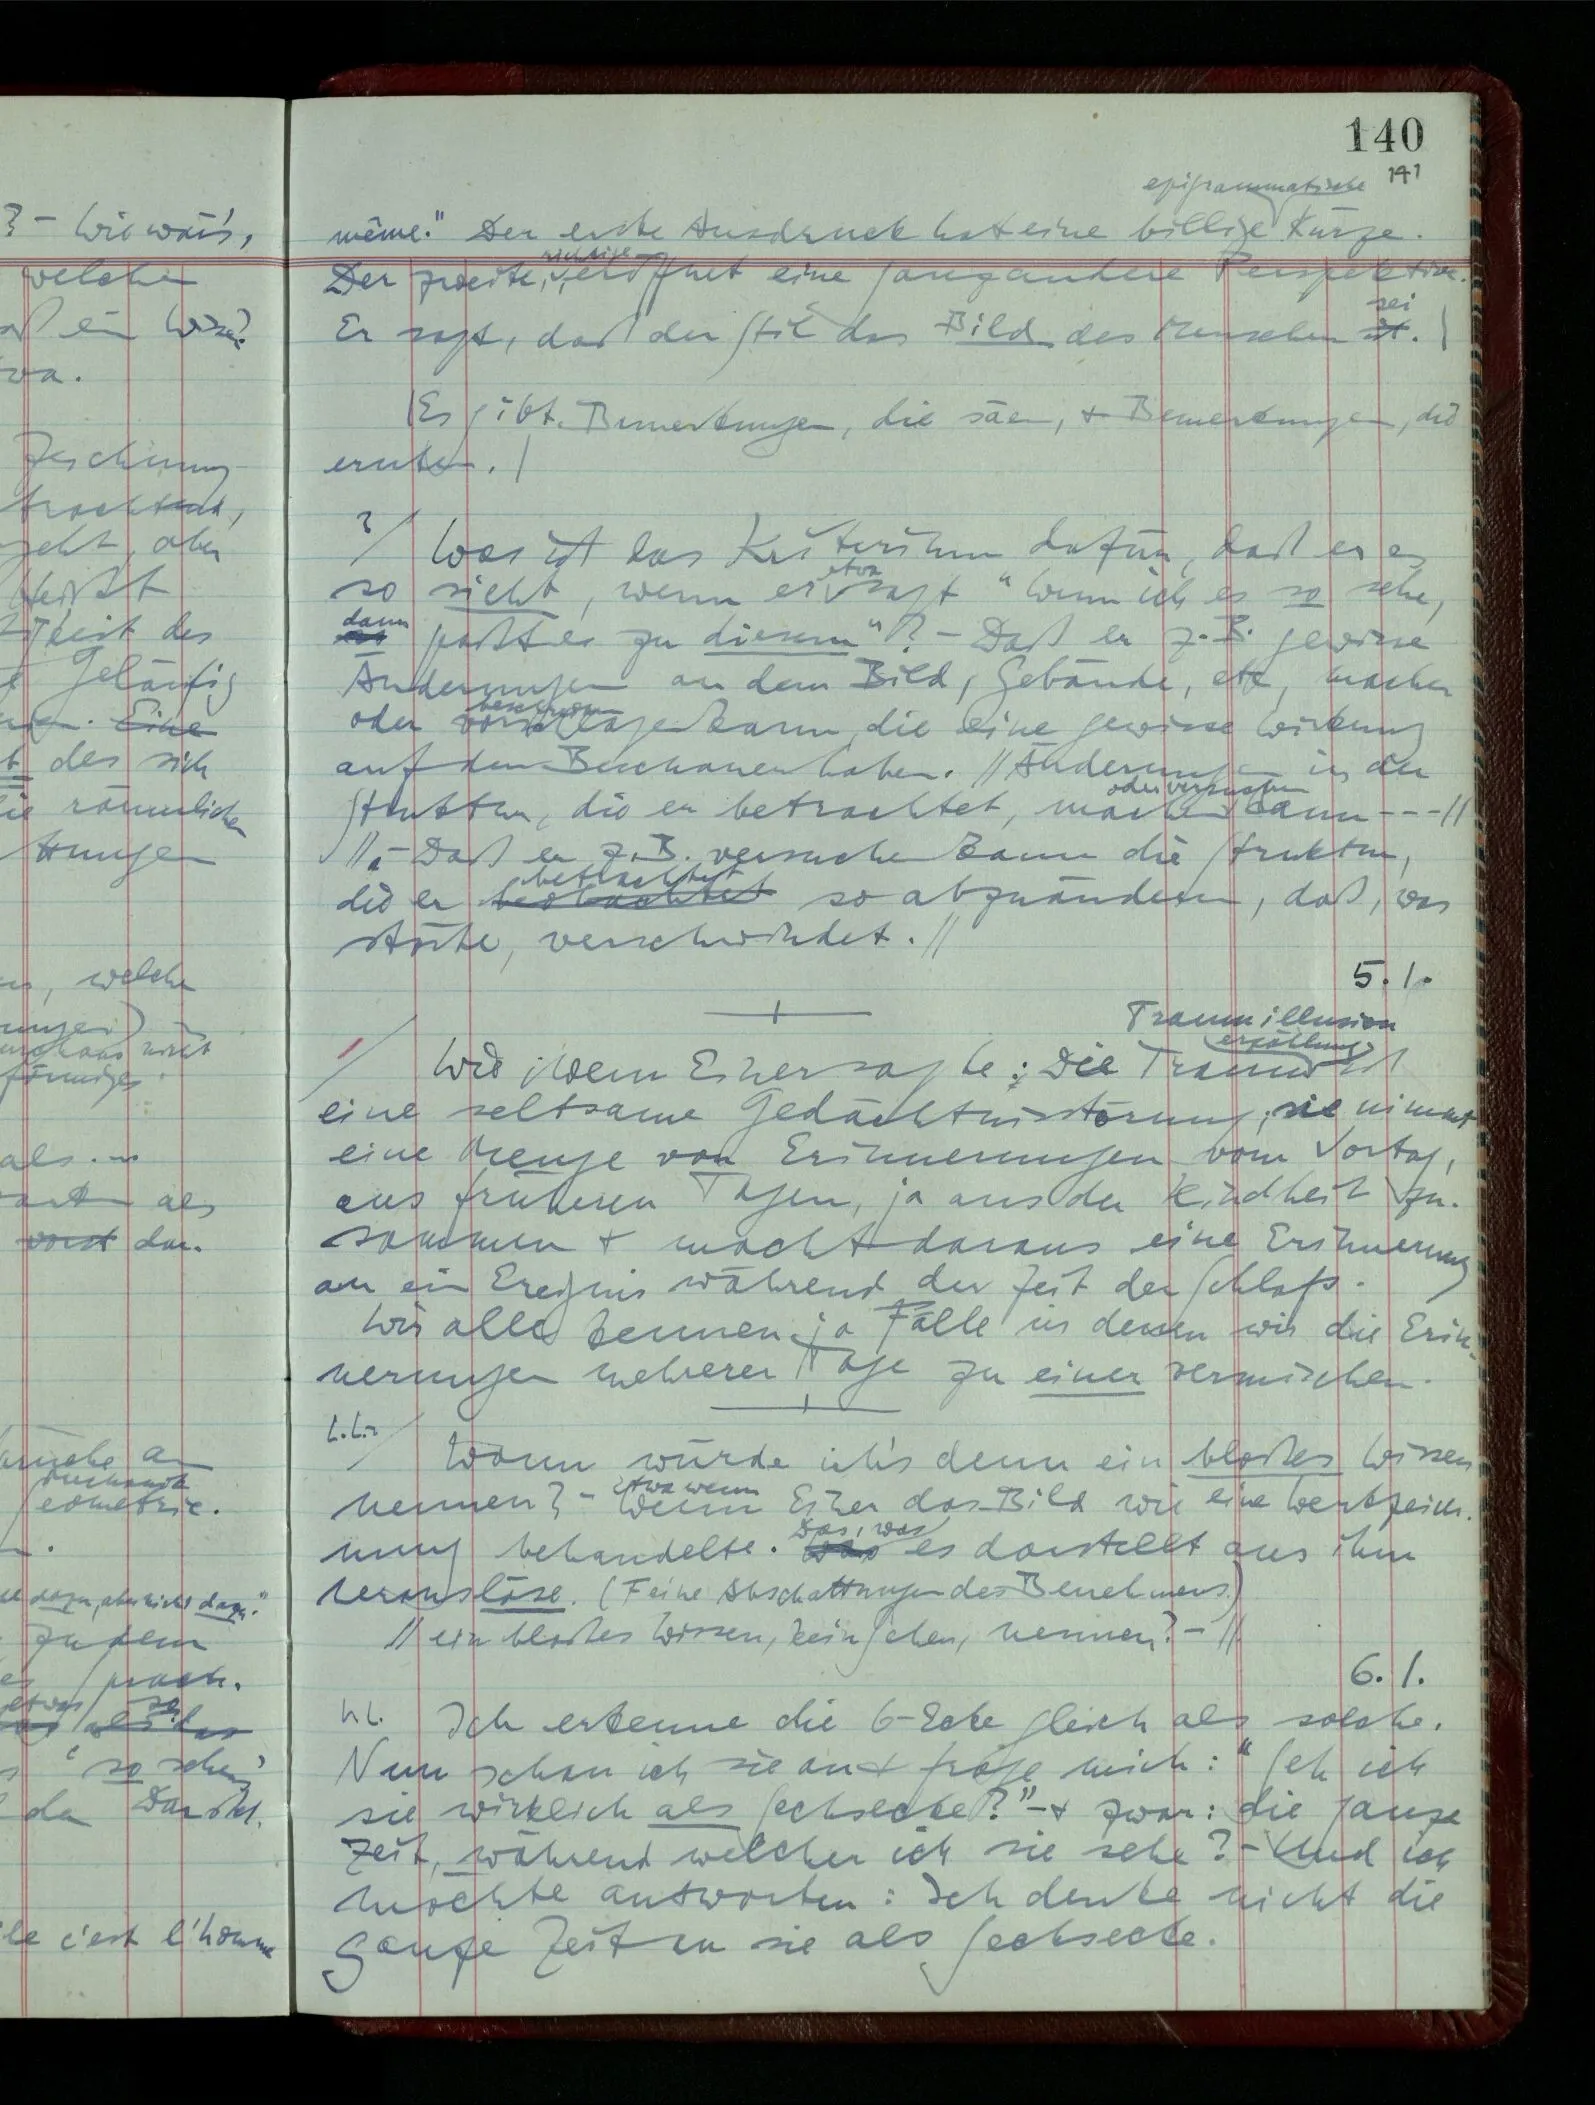 ? – Wie wär's,
welche
daß ein
Zeichnung
trachtet,
geht, aber
Heißt
des
Geläufig
Eine
des sich
die räumliche
welche
als
als
dar.
an
eometrie.
dazu, aber nicht dazu."
zu dem
etwas so
als das
'so sehen'
da
le c'est l'homme
140
141
epigrammatische
même." Der erste Ausdruck hat eine billige Kürze.
richtige
Der zweite, eröffnet eine ganz andere Perspektive.
sei
Er sagt, daß der Stil das Bild des Menschen ist. |
|Es gibt Bemerkungen, die säen, + Bemerkungen, die
ernten. |
? / Was ist das Kriterium dafür, daß er es
etwa
so sieht, wenn er sagt "Wenn ich es so sehe,
dann
paßt es zu diesem"? – Daß er z.B. gewisse
Änderungen an dem Bild, Gebäude, etc, machen
beschreiben
oder vorschlagen kann, die eine gewisse Wirkung
auf den Beschauer haben. // Änderungen in der
oder versuchen
Struktur, die er betrachtet, machen kann – – – //
// – Daß er z.B. versuchen kann die Struktur,
betrachtet
die er beobachtet so abzuändern, daß, was
störte, verschwindet. //
5.1.
Traumillusion
erzählung
/ Wie wenn Einer sagte: Die Traum ist
eine seltsame Gedächtnisstörung; sie nimmt
eine Menge von Erinnerungen vom Vortag,
aus früheren Tagen, ja aus der Kindheit zu-
sammen + macht daraus eine Erinnerung
an ein Ereignis während der Zeit des Schlafs.
Wir alle kennen ja Fälle in denen wir die Erin-
nerungen mehrerer Tage zu einer vermischen.
/ Wann würde ich's denn ein bloßes Wissen
etwa wenn
nennen? – Wenn Einer das Bild wie eine Werkzeich-
Das, was
nung behandelte. was es darstellt aus ihm
herausläse. (Feine Abschattungen des Benehmens.)
// ein bloßes Wissen, kein Sehen, nennen? – //
6.1.
Ich erkenne die 6-Ecke gleich als solche.
Nun schau ich sie an + frage mich: "Seh ich
sie wirklich als Sechsecke?" – + zwar: die ganze
Zeit, während welcher ich sie sehe? – Und ich
möchte antworten: Ich denke nicht die
ganze Zeit an sie als Sechsecke.